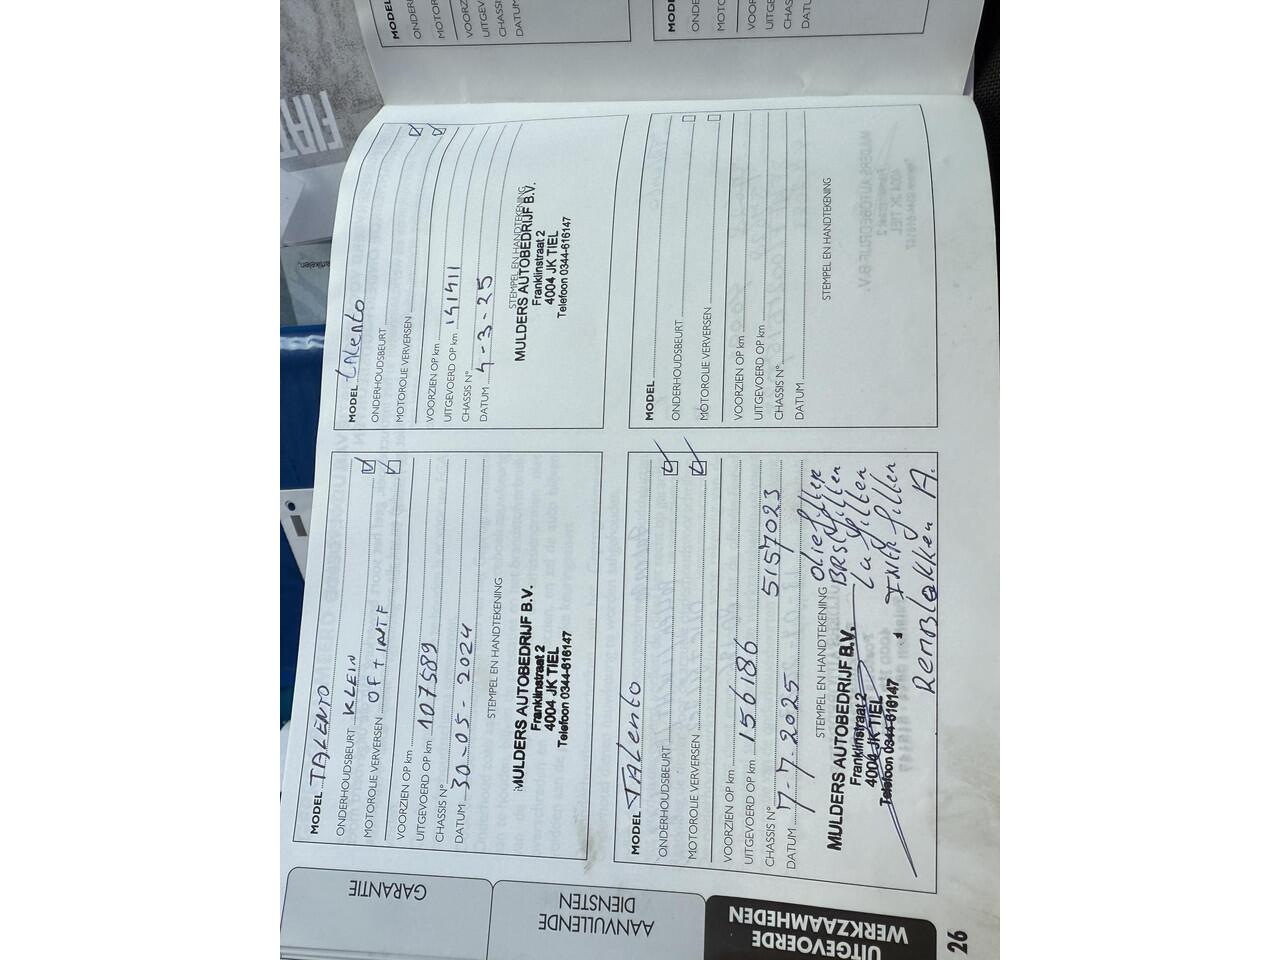 MODEL
ONDERH
MOTORO
VOORZ
UITGEV
CHASSI
DATUM
MODEL
ONDE
MOTO
VOORZ
UITGE
CHAS
DAT
FIAT
artikelen,
MODEL TALENTO
ONDERHOUDSBEURT KLEIN
MOTOROLIE VERVERSEN OF + INTF
VOORZIEN OP km
UITGEVOERD OP km 107589
CHASSIS N°
DATUM 30-05-2024
STEMPEL EN HANDTEKENING
MULDERS AUTOBEDRIJF B.V.
Franklinstraat 2
4004 JK TIEL
Telefoon 0344-616147
MODEL TALENTO
ONDERHOUDSBEURT
MOTOROLIE VERVERSEN
VOORZIEN OP km
UITGEVOERD OP km 141411
CHASSIS N°
DATUM 4-3-25
STEMPEL EN HANDTEKENING
MULDERS AUTOBEDRIJF B.V.
Franklinstraat 2
4004 JK TIEL
Telefoon 0344-616147
MODEL TALENTO
ONDERHOUDSBEURT
MOTOROLIE VERVERSEN
VOORZIEN OP km
UITGEVOERD OP km 156186
CHASSIS N° 5157023
DATUM 7-7-2025
STEMPEL EN HANDTEKENING
MULDERS AUTOBEDRIJF B.V.
Franklinstraat 2
4004 JK TIEL
Telefoon 0344-616147
Oliefilter
BRSt filter
Lu filter
INter filter
Remblokken A.
MODEL
ONDERHOUDSBEURT
MOTOROLIE VERVERSEN
VOORZIEN OP km
UITGEVOERD OP km
CHASSIS N°
DATUM
STEMPEL EN HANDTEKENING
GARANTIE
AANVULLENDE
DIENSTEN
UITGEVOERDE
WERKZAAMHEDEN
26